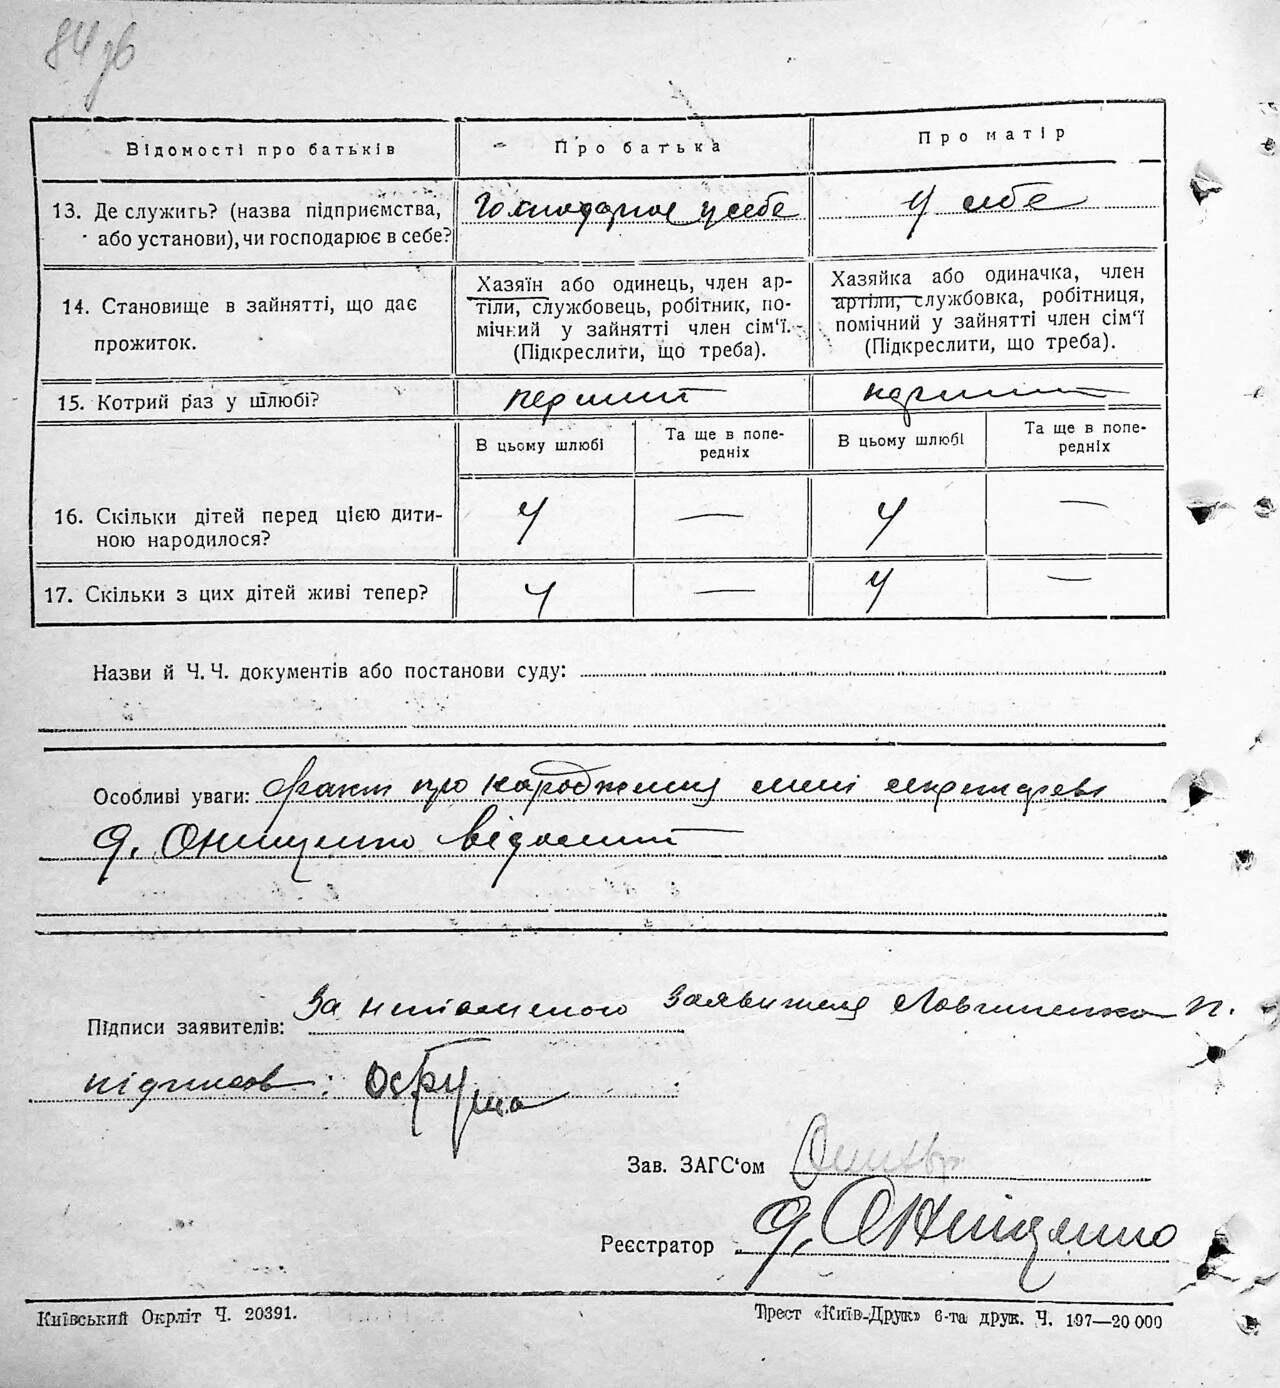 84 зв
Відомості про батьків
Про батька
Про матір
13. Де служить? (назва підприємства, або установи), чи господарює в себе?
Господарює у себе
У себе
14. Становище в зайнятті, що дає прожиток.
Хазяїн або одинець, член ар-
тіли, службовець, робітник, по-
мічний у зайнятті член сім'ї.
(Підкреслити, що треба).
Хазяйка або одиначка, член
артіли, службовка, робітниця,
помічний у зайнятті член сім'ї
(Підкреслити, що треба).
15. Котрий раз у шлюбі?
перший
перший
В цьому шлюбі
Та ще в попе-
редніх
В цьому шлюбі
Та ще в попе-
редніх
16. Скільки дітей перед цією дити-
ною народилося?
4
—
4
—
17. Скільки з цих дітей живі тепер?
4
—
4
—
Назви й Ч. Ч. документів або постанови суду:
Особливі уваги: Факт про народження мені секретареві
Д. Онищенко відомий
Підписи заявителів: За неписьменого заявителя п.
підписав:
Зав. ЗАГС'ом
Реєстратор Д. Оніщенко
Київський Окрліт Ч. 20391.
Трест «Київ-Друк» 6-та друк. Ч. 197—20 000